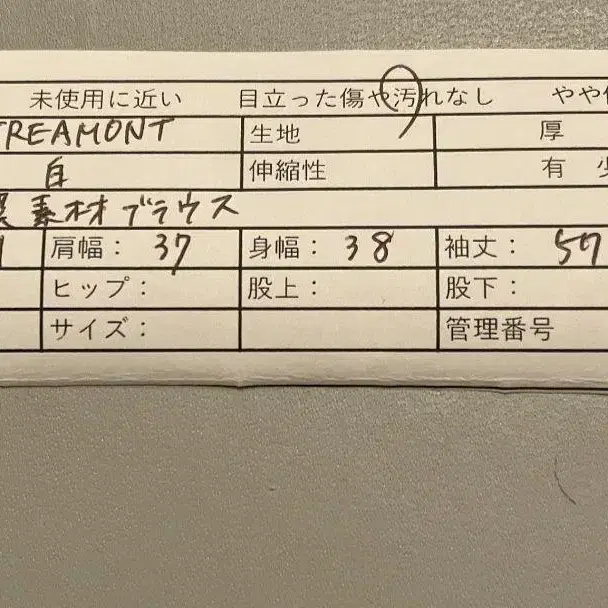 未使用に近い 目立った傷や汚れなし やや
TREAMONT 生地 厚
白 伸縮性 有 少
異素材ブラウス
肩幅： 37 身幅： 38 袖丈： 57
ヒップ： 股上： 股下：
サイズ： 管理番号